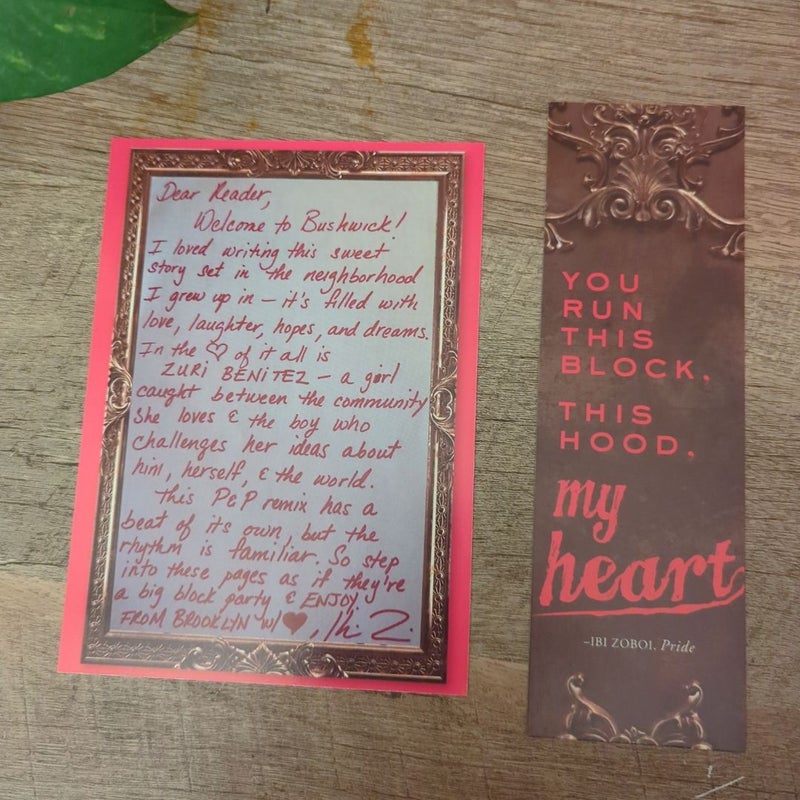 Dear Reader,
Welcome to Bushwick!
I loved writing this sweet
story set in the neighborhood
I grew up in – it's filled with
love, laughter, hopes, and dreams.
In the ♡ of it all is
ZURI BENITEZ – a girl
caught between the community
she loves & the boy who
challenges her ideas about
him, herself, & the world.
This P&P remix has a
beat of its own, but the
rhythm is familiar. So step
into these pages as if they're
a big block party & ENJOY
FROM BROOKLYN w/ ♥, Ibi Z.
YOU
RUN
THIS
BLOCK,
THIS
HOOD,
my
heart
–IBI ZOBOI, Pride